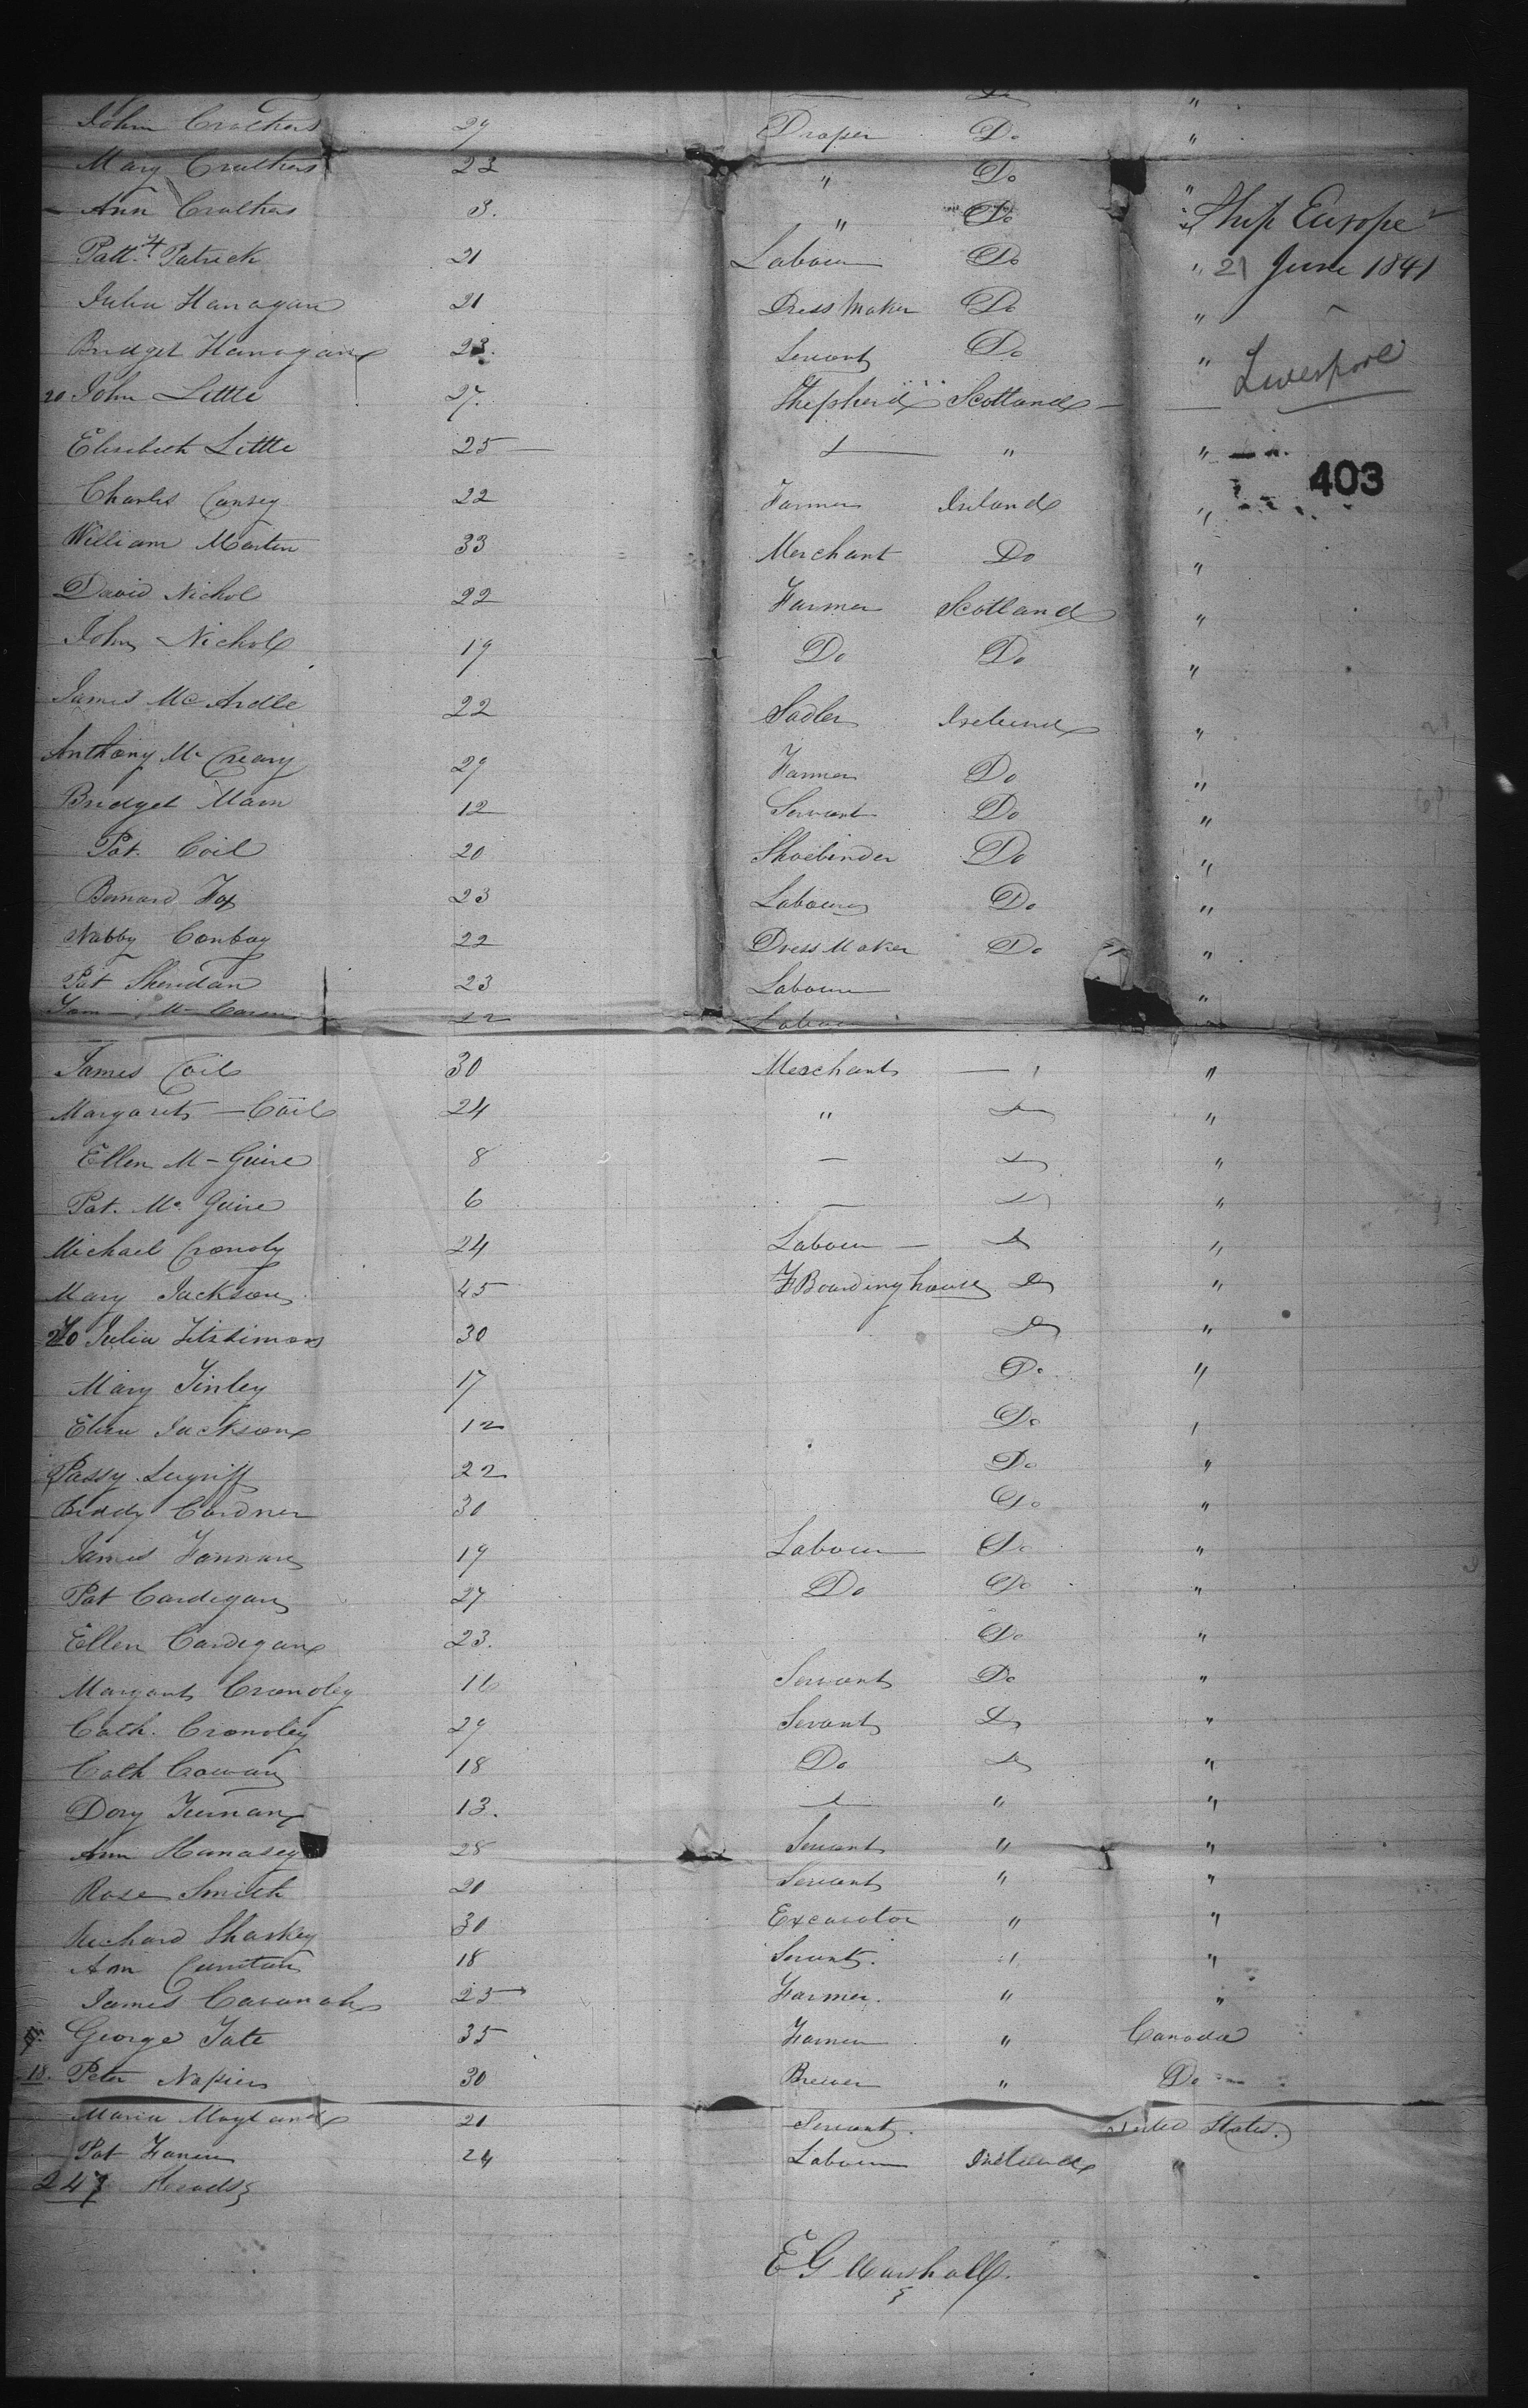 Do "
John Crothers 29 Draper Do "
Mary Crothers 23 " Do "
Ann Crothers 3. " Do " Ship Europe
Patk. Patrick 21 Labour Do " 21 June 1841
Julia Hanagan 21 Dress Maker Do "
Bridget Hanagan 23. Servant Do " Liverpool
20 John Little 27. Shepherd Scotland
Elisabeth Little 25 "  "
403
Charles 22 Farmer Ireland "
William Martin 33 Merchant Do "
David Nichol 22 Farmer Scotland "
John Nichol 19 Do Do "
James McArdle 22 Sadler Ireland "
Anthony Mc Creary 29 Farmer Do "
Bridget Mavn 12 Servant Do "
Pat. Coil 20 Shoebinder Do "
Bernard Fox 23 Labour Do "
Nabby Conboy 22 Dress Maker Do "
Pat Sheridan 23 Labour "
22 Labour
James Coil 30 Merchant "
Margaret Coil 24 " Do "
Ellen M-Guire 8 — Do "
Pat. Mc Guire 6 — Do "
Michael 24 Labour Do "
Mary Jackson 45 Boarding house Do "
Julia Fitzsimons 30 Do "
Mary Finley 17 Do "
Eliza Jackson 12 Do "
Passy 22 Do "
Biddy Cardner 30 Do "
James Fannan 19 Labour Do "
Pat Cardigan 27 Do Do "
Ellen Cardigan 23. Do "
Margaret Cronoley 16 Servant Do "
Cath. Cronoley 29 Servant Do "
Cath Cowan 18 Do Do "
Dory 13. " "
Ann Hanasey 28 Servant " "
Rose Smith 20 Servant " "
Richard Sharkey 30 Excavator " "
Ann 18 Servant. " "
James Cavanah 25 Farmer. " "
George Tate 35 Farmer " Canada
18. Peter Napier 30 Brewer " Do
Maria 21 Servant. United States.
Pat 24 Labour Ireland "
247 Heads
E G Marshall